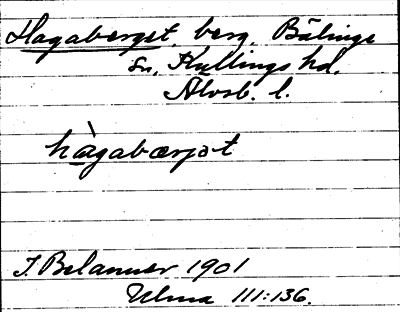 Hagaberget, berg, Bälinge
sn, Kullings hd.
Älvsb. l.
hàgabærjat
I. Belanner 1901
Ulma 111:136.